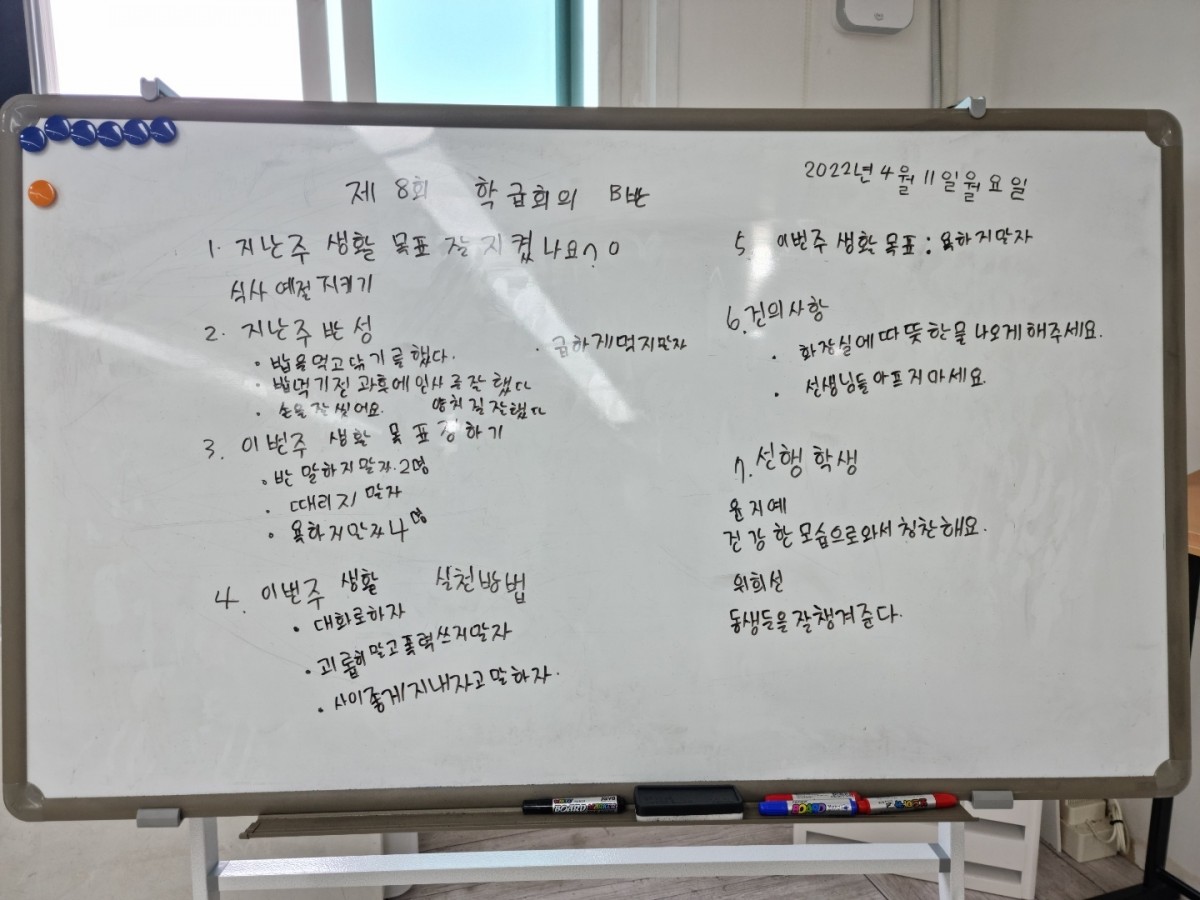 제 8회 학급회의 B반
2022년 4월 11일 월요일
1. 지난주 생활 목표 잘 지켰나요? O
식사 예절 지키기
2. 지난주 반성
· 밥을 먹고 닦기를 했다.
· 급하게 먹지말자
· 밥먹기전 과후에 인사를 잘 했다
· 손을 잘 씻어요. 양치질 잘했다
3. 이번주 생활 목표 정하기
· 반말하지말자. 2명
· 때리지 말자
· 욕하지말자 4명
4. 이번주 생활 실천방법
· 대화로하자
· 괴롭히 말고 폭력쓰지말자
· 사이좋게 지내자고 말하자.
5. 이번주 생활 목표 : 욕하지말자
6. 건의사항
· 화장실에 따뜻한물 나오게 해주세요.
· 선생님들 아프지마세요.
7. 선행 학생
윤지예
건강한 모습으로와서 칭찬해요.
위희선
동생들을 잘챙겨준다.
BOARD